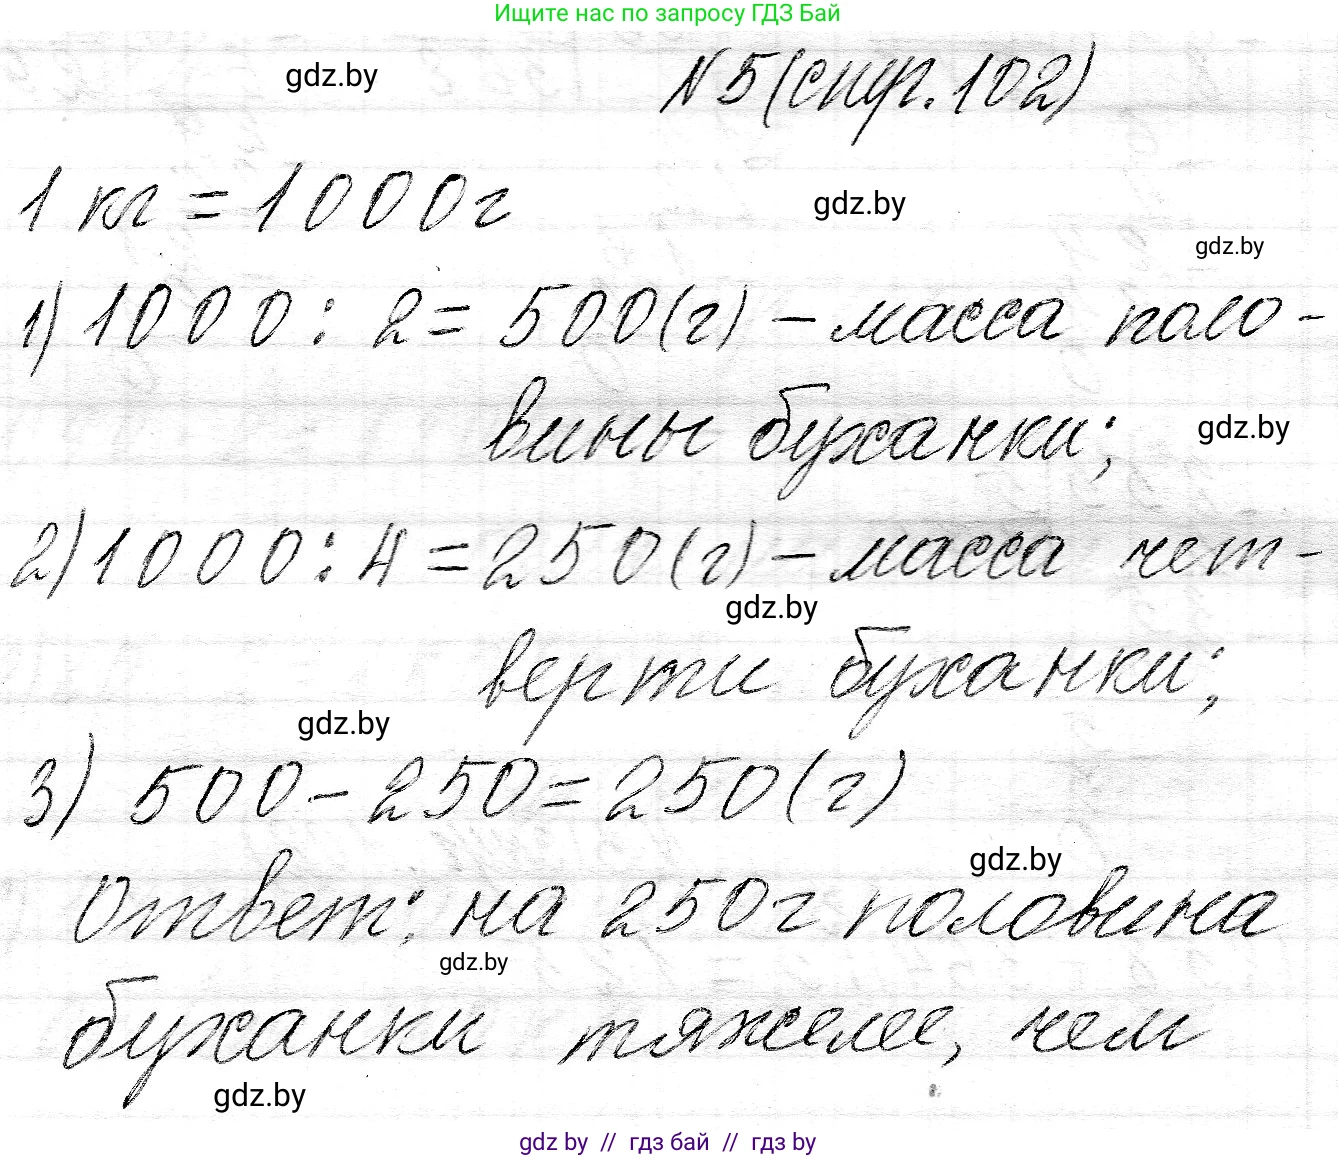 Ищите нас по запросу ГДЗ Бай
gdz.by
№5 (стр. 102)
1 кг = 1000г
gdz.by
gdz.by
1) 1000 : 2 = 500(г) – масса поло-
вины буханки;
gdz.by
2) 1000 : 4 = 250(г) – масса чет-
gdz.by
верти буханки;
gdz.by
3) 500 – 250 = 250(г)
gdz.by
Ответ: на 250г половина
gdz.by
буханки тяжелее, чем
gdz.by
gdz by // гдз бай // гдз by